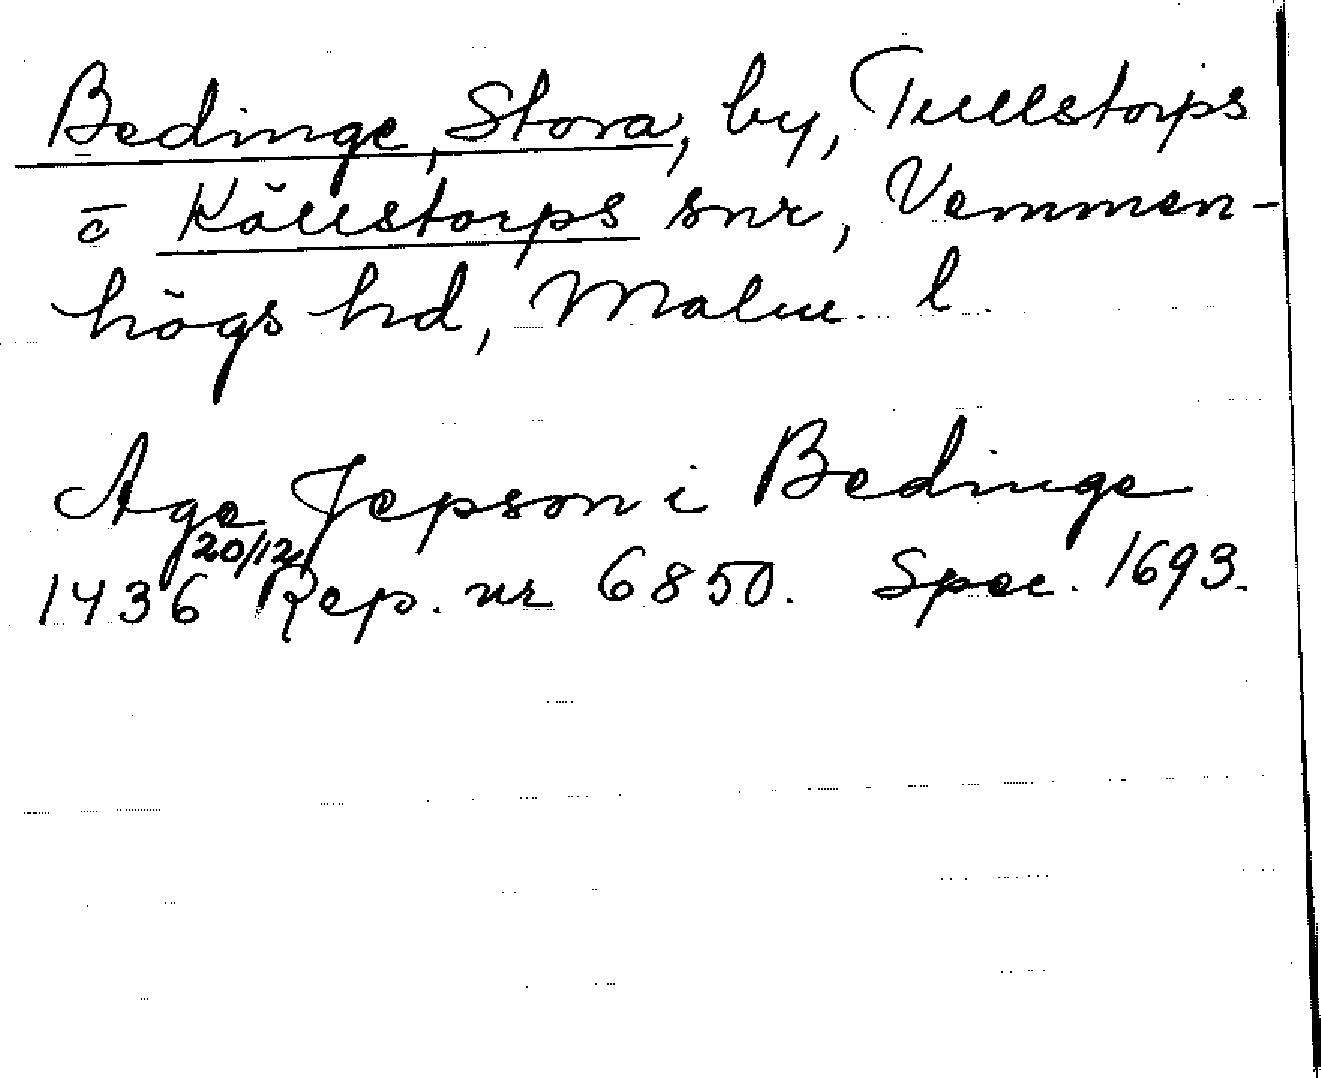 Bedinge, Stora, by, Tullstorps
o Källstorps snr, Vemmen-
högs hd, Malm. l
Age Jepson i Bedinge
1436 20/12 Rep. nr 6850. Spec. 1693.